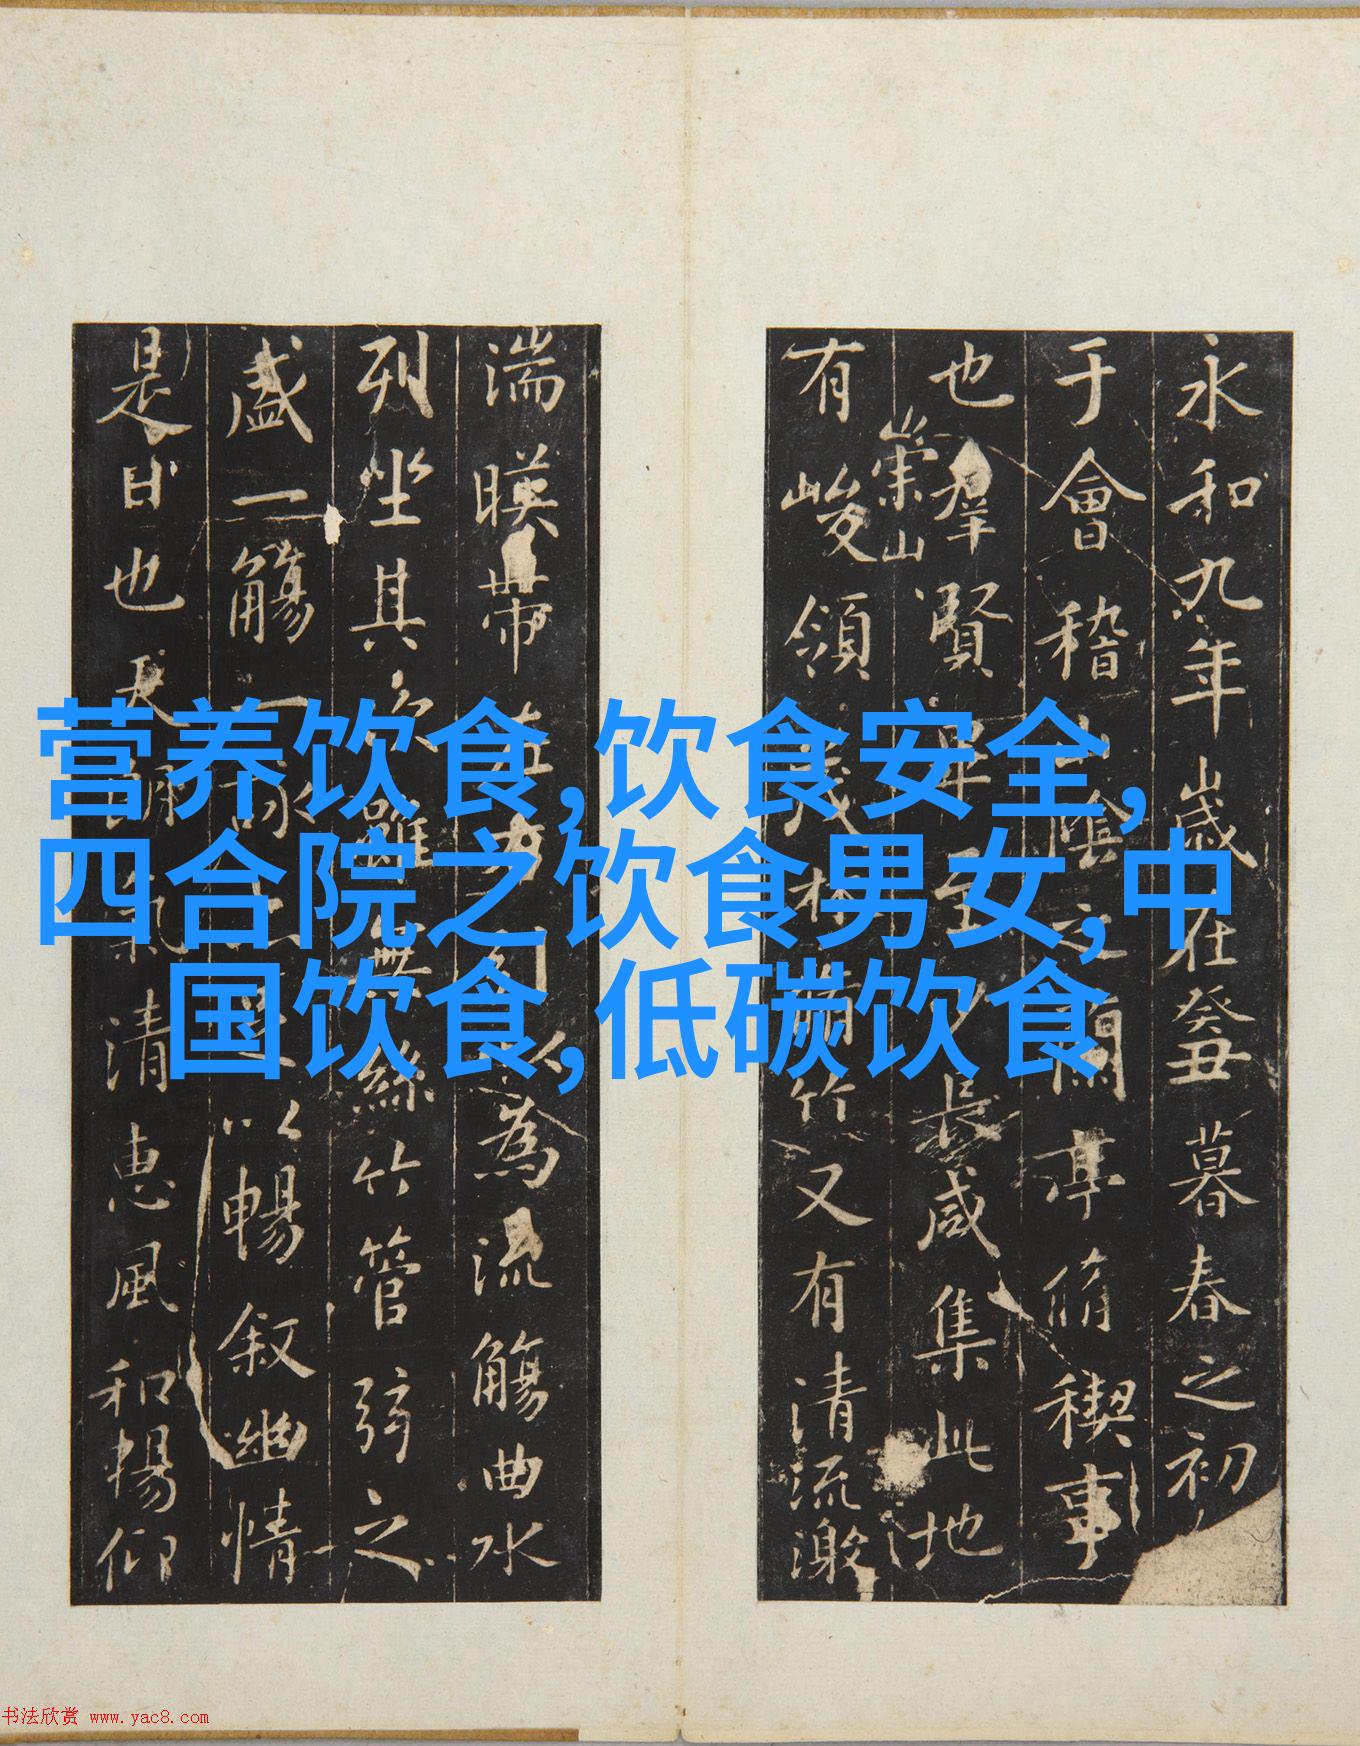 永和九年歲在癸丑暮春之初
于會稽山陰之蘭亭脩稧事
也羣賢畢至少長咸集此地
崇山
有峻領茂林脩竹又有清流激
湍暎帶左右引以為流觴曲水
列坐其次雖無絲竹管弦之
盛一觴一詠亦足以暢叙幽情
是日也天朗氣清惠風和暢仰
营养饮食,饮食安全,
四合院之饮食男女,中
国饮食,低碳饮食
书法欣赏 www.yac8.com